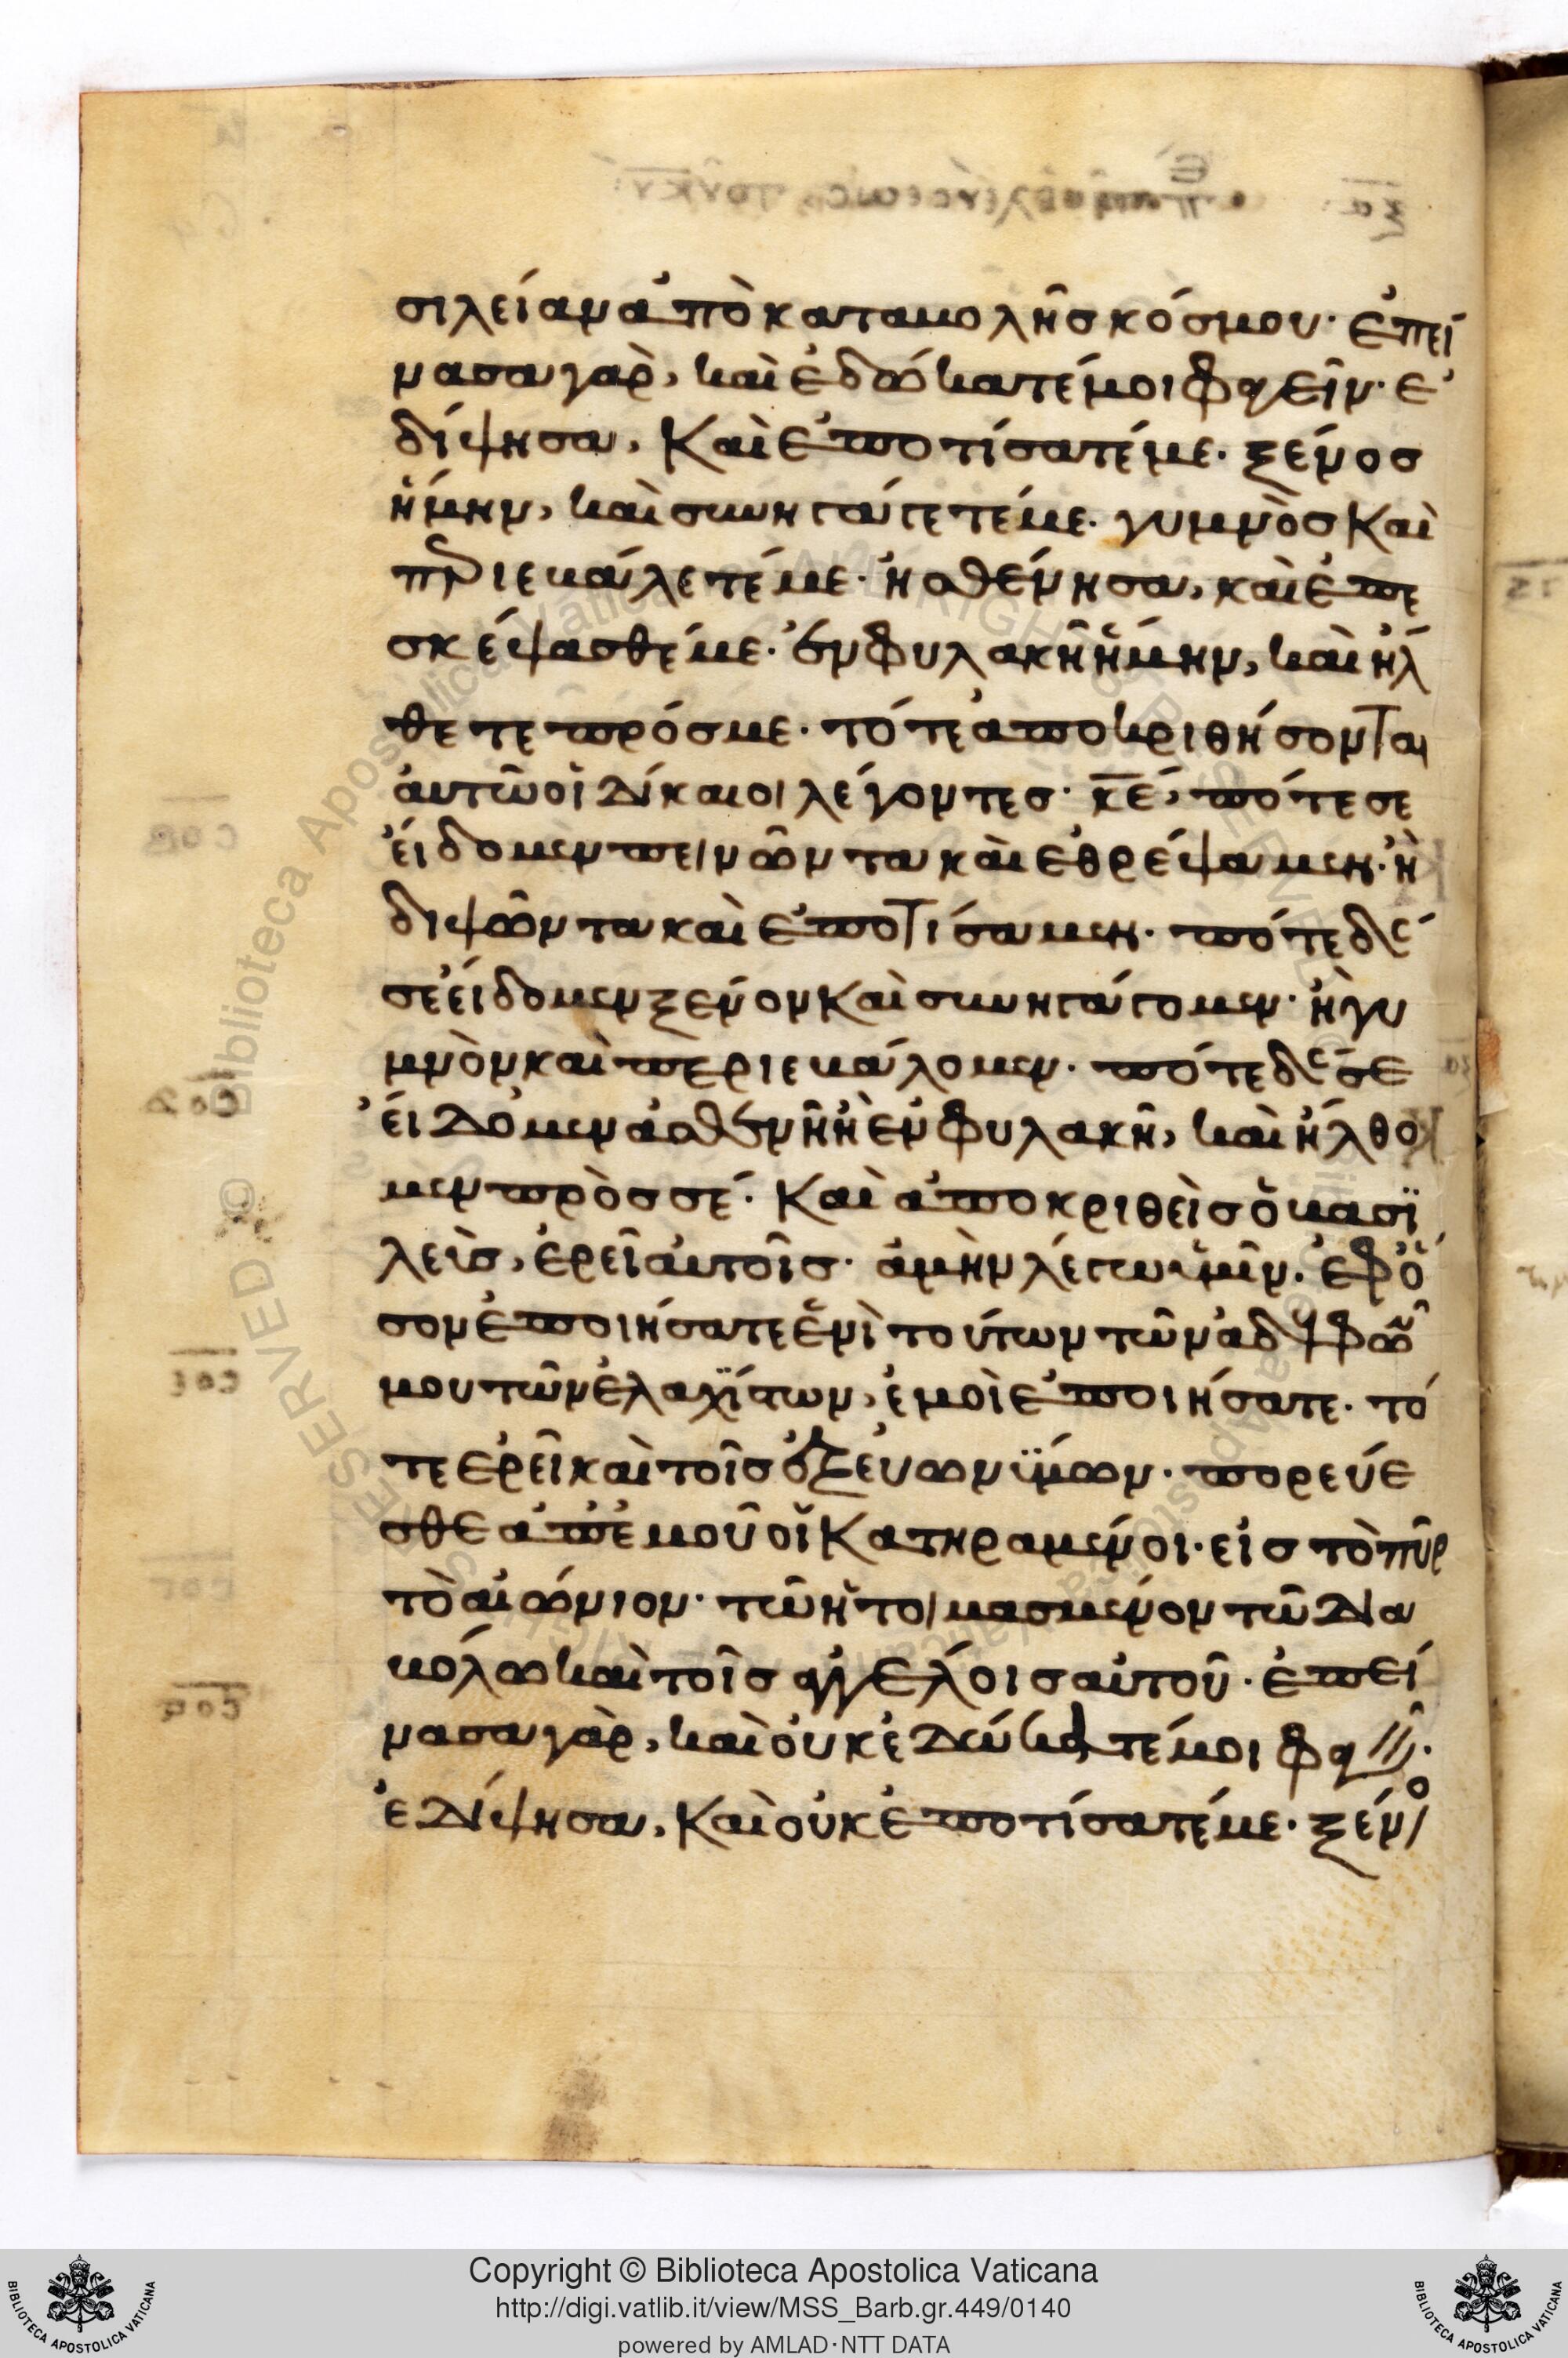 σιλείαν ἀπὸ καταβολῆσ κόσμου· ἐπεί
νασα γαρ, και ἐδώκατέ μοι φαγεῖν· ἐ
δίψησα, Και ἐποτίσατέ με· ξένοσ
ἤμην, καὶ συνηγάγετέ με· γυμνὸσ Καὶ
περιεβάλετέ με· ἠσθένησα, καὶ ἐπε
σκέψασθέ με· ἐν φυλακῆ ἤμην, καὶ ἤλ
θετε πρόσ με· τότε ἀποκριθήσονται
ἀυτῶ οἱ δίκαιοι λέγοντεσ· κ̅ε̅, πότε σε
εἴδομεν πεινῶντα καὶ ἐθρέψαμεν· ἢ
διψῶντα καὶ ἐποτίσαμεν· πότε δέ
σε εἴδομεν ξένον Καὶ συνηγάγομεν· ἢ γυ
μνὸν καὶ περιεβάλομεν· πότε δέ σε
εἴδομεν ἀσθενῆ ἢ ἐν φυλακῆ, καὶ ἤλθο
μεν πρὸσ σέ· Καὶ ἀποκριθεὶσ ὁ βασϊ
λεὺσ, ἐρεῖ ἀυτοῖσ· ἀμὴν λέγω ὑμῖν· ἐφ ὅ
σον ἐποιήσατε ἑνὶ τούτων τῶν ἀδελφῶν
μου τῶν ἐλαχϊστων, ἐμοὶ ἐποιήσατε· τό
τε ἐρεῖ καὶ τοῖσ ἐξ ἐυωνϋμων· πορεύε
σθε ἀπ ἐμοῦ οἱ Κατηραμένοι· εἰσ τὸ πῦρ
τὸ αἰώνιον· τῶ ἡτοιμασμένον τῶ δια
βόλω καὶ τοῖσ ἀγγέλοισ αὐτοῦ· ἐπεί
νασα γὰρ, καὶ ὀυκ ἐδώκατέ μοι φαγεῖν·
ἐδίψησα, Καὶ οὐκ ἐποτίσατέ με· ξένο
Copyright © Biblioteca Apostolica Vaticana
http://digi.vatlib.it/view/MSS_Barb.gr.449/0140
powered by AMLAD·NTT DATA
BIBLIOTECA APOSTOLICA VATICANA
BIBLIOTECA APOSTOLICA VATICANA